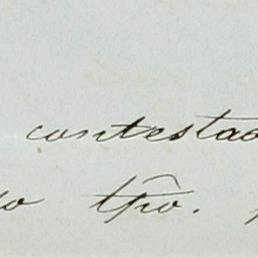 contestad
tp̃o.